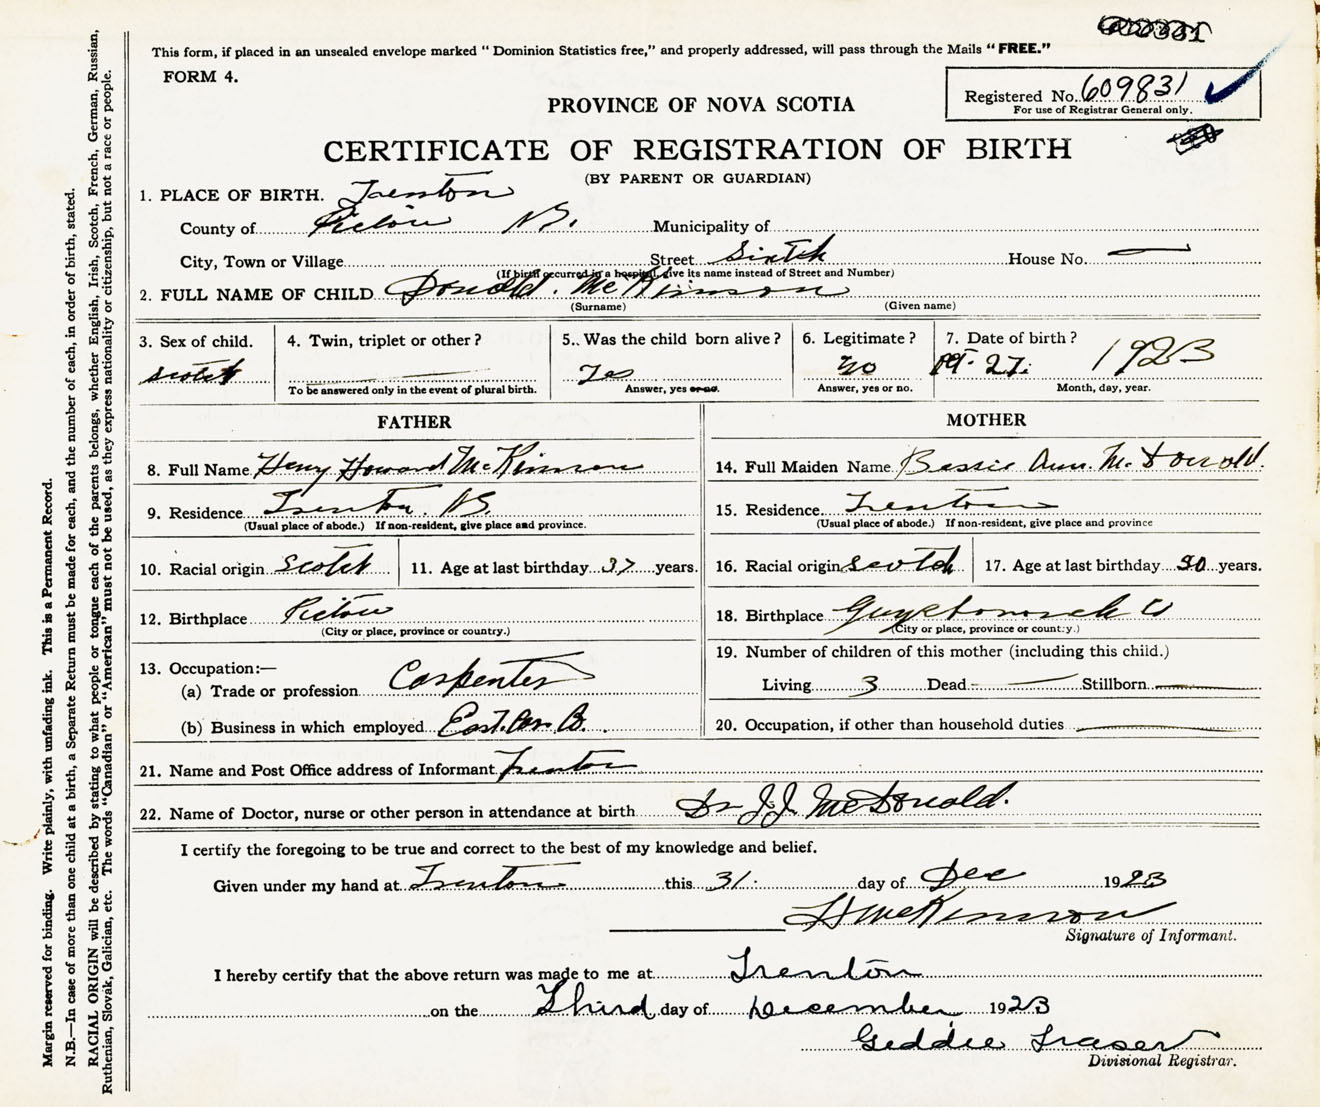 This form, if placed in an unsealed envelope marked "Dominion Statistics free," and properly addressed, will pass through the Mails "FREE."
FORM 4.
Registered No. 609831
For use of Registrar General only.
PROVINCE OF NOVA SCOTIA
CERTIFICATE OF REGISTRATION OF BIRTH
(BY PARENT OR GUARDIAN)
1. PLACE OF BIRTH. Trenton
County of Pictou N.S. Municipality of
City, Town or Village Street Sixth House No.
(If birth occurred in a hospital, give its name instead of Street and Number)
2. FULL NAME OF CHILD Donald. McKinnon
(Surname) (Given name)
3. Sex of child. 4. Twin, triplet or other? 5.. Was the child born alive? 6. Legitimate? 7. Date of birth?
scotch Yes no 27. 1923
To be answered only in the event of plural birth. Answer, yes or no. Answer, yes or no. Month, day, year.
FATHER MOTHER
8. Full Name Henry Howard McKinnon 14. Full Maiden Name Bessie Ann. McDonald.
9. Residence Trenton. N.S. 15. Residence. Trenton
(Usual place of abode.) If non-resident, give place and province. (Usual place of abode.) If non-resident, give place and province
10. Racial origin Scotch 11. Age at last birthday 37 years. 16. Racial origin scotch 17. Age at last birthday 30 years.
12. Birthplace Pictou 18. Birthplace Guysborough Co
(City or place, province or country.) (City or place, province or country.)
13. Occupation:— 19. Number of children of this mother (including this child.)
(a) Trade or profession Carpenter Living 3 Dead Stillborn
(b) Business in which employed East. Car Co. 20. Occupation, if other than household duties
21. Name and Post Office address of Informant Trenton
22. Name of Doctor, nurse or other person in attendance at birth Dr J.J. McDonald.
I certify the foregoing to be true and correct to the best of my knowledge and belief.
Given under my hand at Trenton this 31. day of Dec 1923
H McKinnon
Signature of Informant.
I hereby certify that the above return was made to me at Trenton
on the Third day of December 1923
Geddie Fraser
Divisional Registrar.
Margin reserved for binding. Write plainly, with unfading ink. This is a Permanent Record.
N.B.—In case of more than one child at a birth, a Separate Return must be made for each, and the number of each, in order of birth, stated.
RACIAL ORIGIN will be described by stating to what people or tongue each of the parents belongs, whether English, Irish, Scotch, French, German, Russian,
Ruthenian, Slovak, Galician, etc. The words "Canadian" or "American" must not be used, as they express nationality or citizenship, but not a race or people.